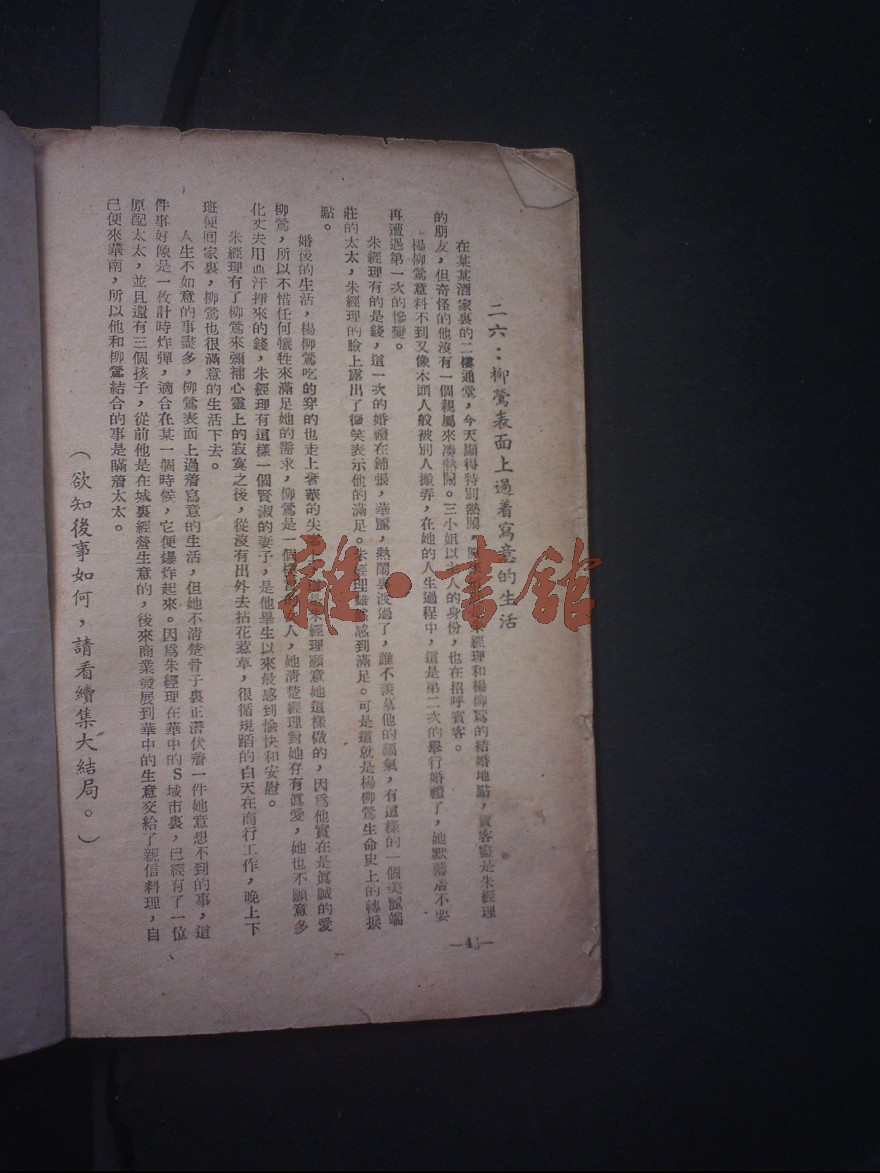 二六：柳鶯表面上過着寫意的生活
在某某酒家裏的二樓通堂，今天顯得特別熱鬧，朱經理和楊柳鶯的結婚地點，賓客盡是朱經理
的朋友，但奇怪的他沒有一個親屬來湊熱鬧。三小姐以人的身份，也在招呼賓客。
楊柳鶯意料不到又像木頭人般被別人搬弄，在她的人生過程中，這是第二次的舉行婚禮了，她默禱着不要
再遭遇第一次的慘變。
朱經理有的是錢，這一次的婚禮在鋪張，華麗，熱鬧裏渡過了，誰不羨慕他的福氣，有這樣的一個美麗端
莊的太太，朱經理的臉上露出了微笑表示他的滿足。朱經理雖然感到滿足。可是這就是楊柳鶯生命史上的轉捩
點。
婚後的生活，楊柳鶯吃的穿的也走上奢華的尖，是朱經理願意她這樣做的，因爲他實在是眞誠的愛
柳鶯，所以不惜任何犧牲來滿足她的需求，柳鶯是一個人，她淸楚經理對她存有眞愛，她也不願意多
化丈夫用血汗掙來的錢，朱經理有這樣一個賢淑的妻子，是他畢生以來最感到愉快和安慰。
朱經理有了柳鶯來彌補心靈上的寂寞之後，從沒有出外去拈花惹草，很循規蹈的白天在商行工作，晚上下
班便回家裏，柳鶯也很滿意的生活下去。
人生不如意的事盡多，柳鶯表面上過着寫意的生活，但她不淸楚骨子裏正潛伏着一件她意想不到的事，這
件事好像是一枚計時炸彈，適合在某一個時候，它便爆炸起來。因爲朱經理在華中的S域市裏，已經有了一位
原配太太，並且還有三個孩子，從前他是在城裏經營生意的，後來商業發展到華中的生意交給了親信料理，自
己便來華南，所以他和柳鶯結合的事是瞞着太太。
（欲知後事如何，請看續集大結局。）
雜·書館